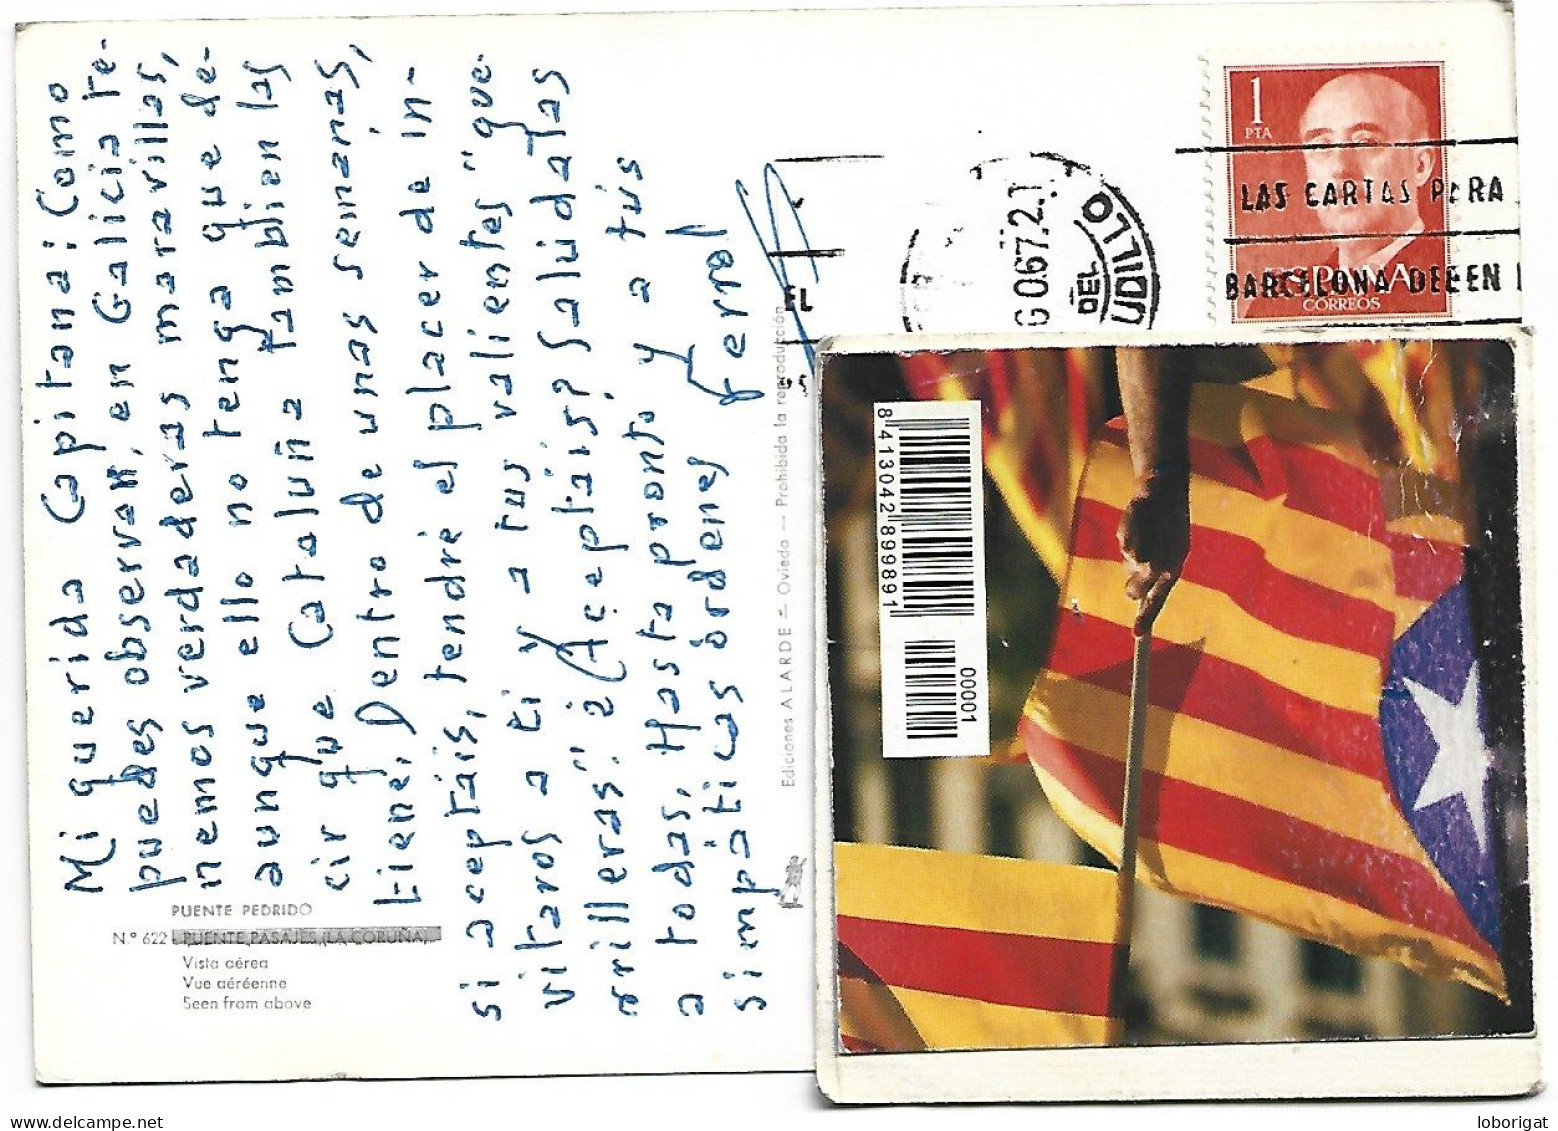 Mi querida Capitana: Como
puedes observar, en Galicia te-
nemos verdaderas maravillas,
aunque ello no tenga que de-
cir que Cataluña tambien las
tiene. Dentro de unas semanas,
si aceptáis, tendré el placer de in-
vitaros a ti y a tus valientes "gue-
arilleras". ¿Aceptáis? Saludalas
a todas. Hasta pronto y a tús
simpáticas órdenes
Ferrol
PUENTE PEDRIDO
N.º 622 PUENTE PASAJES (LA CORUÑA)
Vista aérea
Vue aéreenne
Seen from above
Ediciones ALARDE — Oviedo — Prohibida la reproducción
1
PTA
ESPAÑA
CORREOS
LAS CARTAS PARA
BARCELONA DEBEN
EL
G 0.67.2.1
UDILLO
DEL
8 413042 899891
00001
loborigat